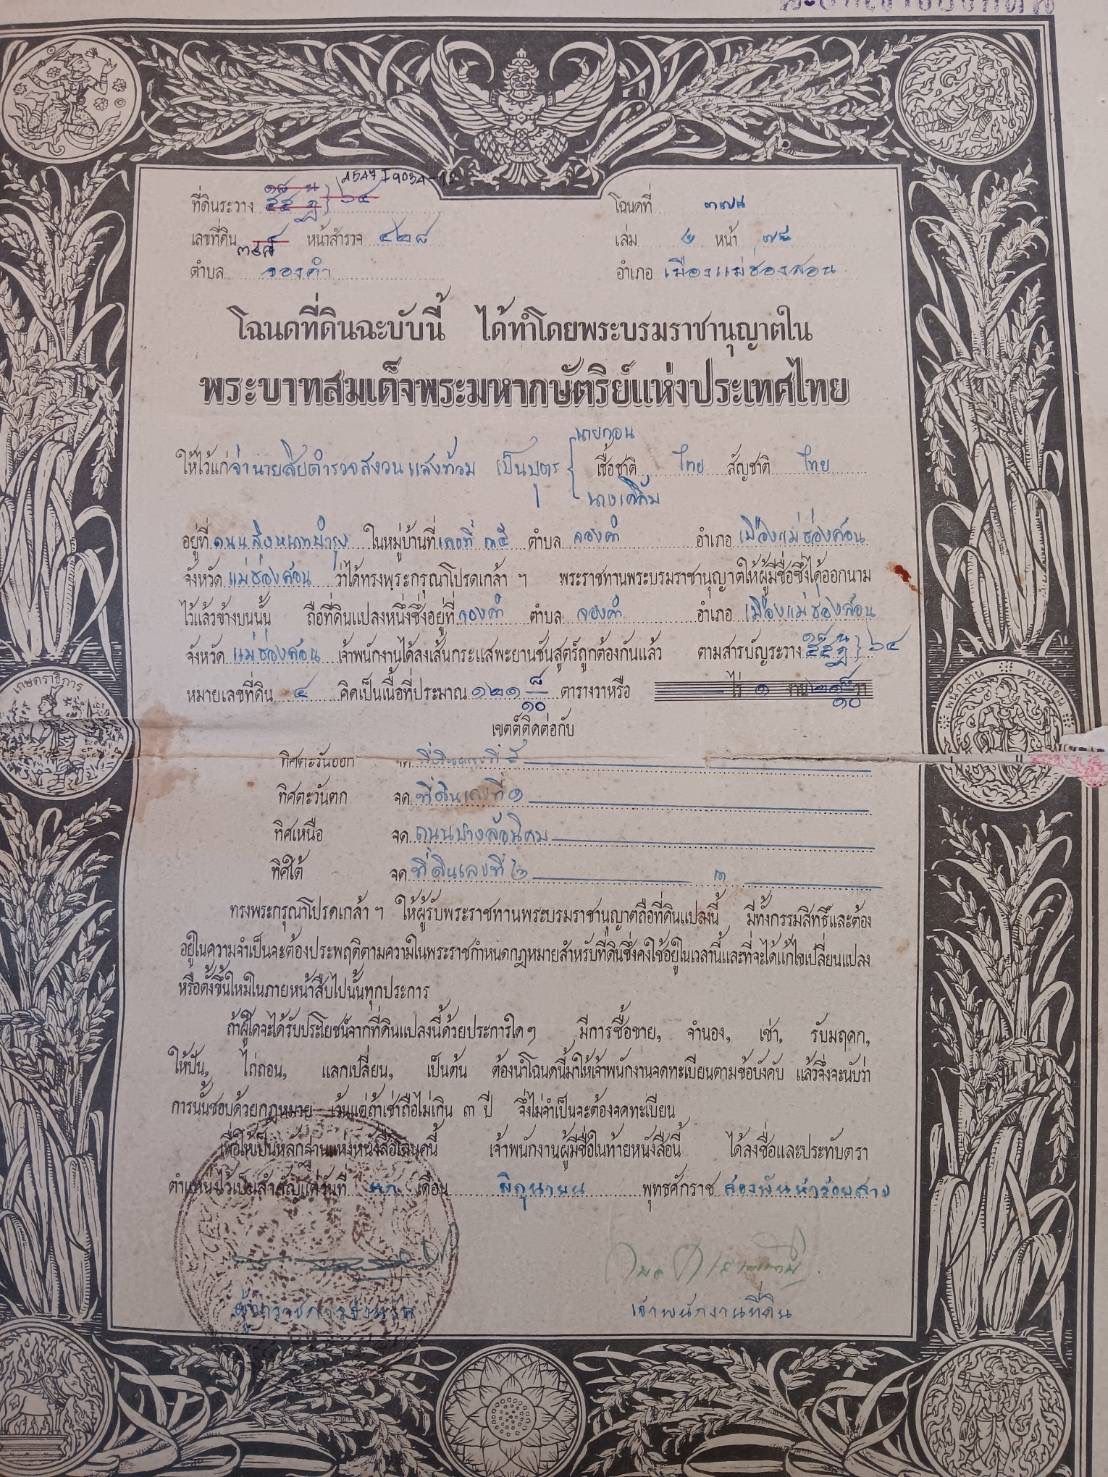 ที่ดินระวาง ๖๔ โฉนดที่ ๓๗๘
เลขที่ดิน หน้าสำรวจ ๔๒๘ เล่ม ๔ หน้า ๗๘
ตำบล จองคำ อำเภอ เมืองแม่ฮ่องสอน
โฉนดที่ดินฉะบับนี้ ได้ทำโดยพระบรมราชานุญาตใน
พระบาทสมเด็จพระมหากษัตริย์แห่งประเทศไทย
ให้ไว้แก่ เป็นบุตร เชื้อชาติ ไทย สัญชาติ ไทย
อยู่ที่ ถนนสิงหนาทบำรุง ในหมู่บ้านที่ ตำบล จองคำ อำเภอ เมืองแม่ฮ่องสอน
จังหวัด แม่ฮ่องสอน ว่าได้ทรงพระกรุณาโปรดเกล้า ฯ พระราชทานพระบรมราชานุญาตให้ผู้มีชื่อซึ่งได้ออกนาม
ไว้แล้วข้างบนนั้น ถือที่ดินแปลงหนึ่งซึ่งอยู่ที่ จองคำ ตำบล จองคำ อำเภอ เมืองแม่ฮ่องสอน
จังหวัด แม่ฮ่องสอน เจ้าพนักงานได้สงเส้นกระแสพะยานชันสูตร์ถูกต้องกันแล้ว ตามสารบัญระวาง ๖๔
หมายเลขที่ดิน ๔ คิดเป็นเนื้อที่ประมาณ ๑๒๑ ๘/๑๐ ตารางวาหรือ
เขตต์ติดต่อกับ
ทิศตะวันออก จด
ทิศตะวันตก จด ที่ดินเลขที่ ๑
ทิศเหนือ จด ถนนปางล้อนิคม
ทิศใต้ จด ที่ดินเลขที่
ทรงพระกรุณาโปรดเกล้า ฯ ให้ผู้รับพระราชทานพระบรมราชานุญาตถือที่ดินแปลงนี้ มีทั้งกรรมสิทธิ์และต้อง
อยู่ในความจำเป็นจะต้องประพฤติตามความในพระราชกำหนดกฎหมายสำหรับที่ดินซึ่งคงใช้อยู่ในเวลานี้และที่จะได้แก้ไขเปลี่ยนแปลง
หรือตั้งขึ้นใหม่ในภายหน้าสืบไปนั้นทุกประการ
ถ้าผู้ใดจะได้รับประโยชน์จากที่ดินแปลงนี้ด้วยประการใด ๆ มีการซื้อขาย, จำนอง, เช่า, รับมฤดก,
ให้ปัน, ไถ่ถอน, แลกเปลี่ยน, เป็นต้น ต้องนำโฉนดนี้มาให้เจ้าพนักงานจดทะเบียนตามข้อบังคับ แล้วจึงจะนับว่า
การนั้นชอบด้วยกฎหมาย เว้นแต่ถ้าเช่าถือไม่เกิน ๓ ปี จึงไม่จำเป็นจะต้องจดทะเบียน
เพื่อให้เป็นหลักฐานแห่งหนังสือโฉนดนี้ เจ้าพนักงานผู้มีชื่อในท้ายหนังสือนี้ ได้ลงชื่อและประทับตรา
ตำแหน่งไว้เป็นสำคัญแต่วันที่ เดือน มิถุนายน พุทธศักราช
ผู้ว่าราชการจังหวัด เจ้าพนักงานที่ดิน